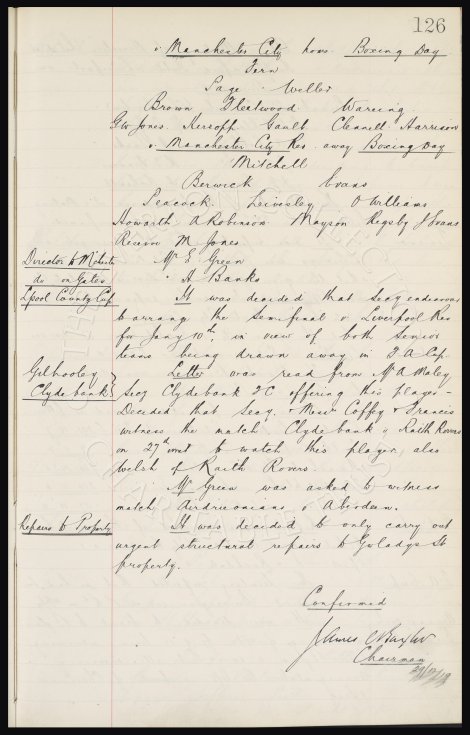 126
v. Manchester City home Boxing Day
Fern
Page Weller
Brown Fleetwood Wareing
Geo Jones Kirsopp Gault Clennell Harrison
v. Manchester City Res. away Boxing Day
Mitchell
Berwick Evans
Peacock Leivesley O Williams
Howarth A Robinson Mayson Rigsby J Evans
Reserve M Jones
Director to M'chester Mr E. Green
do on Gates " A Banks
Lpool County Cup It was decided that Secy endeavour
to arrange the Semi final v Liverpool Res
for Jany 10th, in view of both Senior
teams being drawn away in F A Cup.
Gilhooley Letter was read from Mr A Maley
Clydebank Secy Clydebank F C offering this player -
Decided that Secy. & Messrs Coffey & Francis
witness the match Clydebank v Raith Rovers
on 27th inst to watch this player, also
Welsh of Raith Rovers.
Mr Green was asked to witness
match Airdrieonians v Aberdeen.
Repairs to Property It was decided to only carry out
urgent structural repairs to Gwladys St
property.
Confirmed
James C Baxter
Chairman
29/12/19